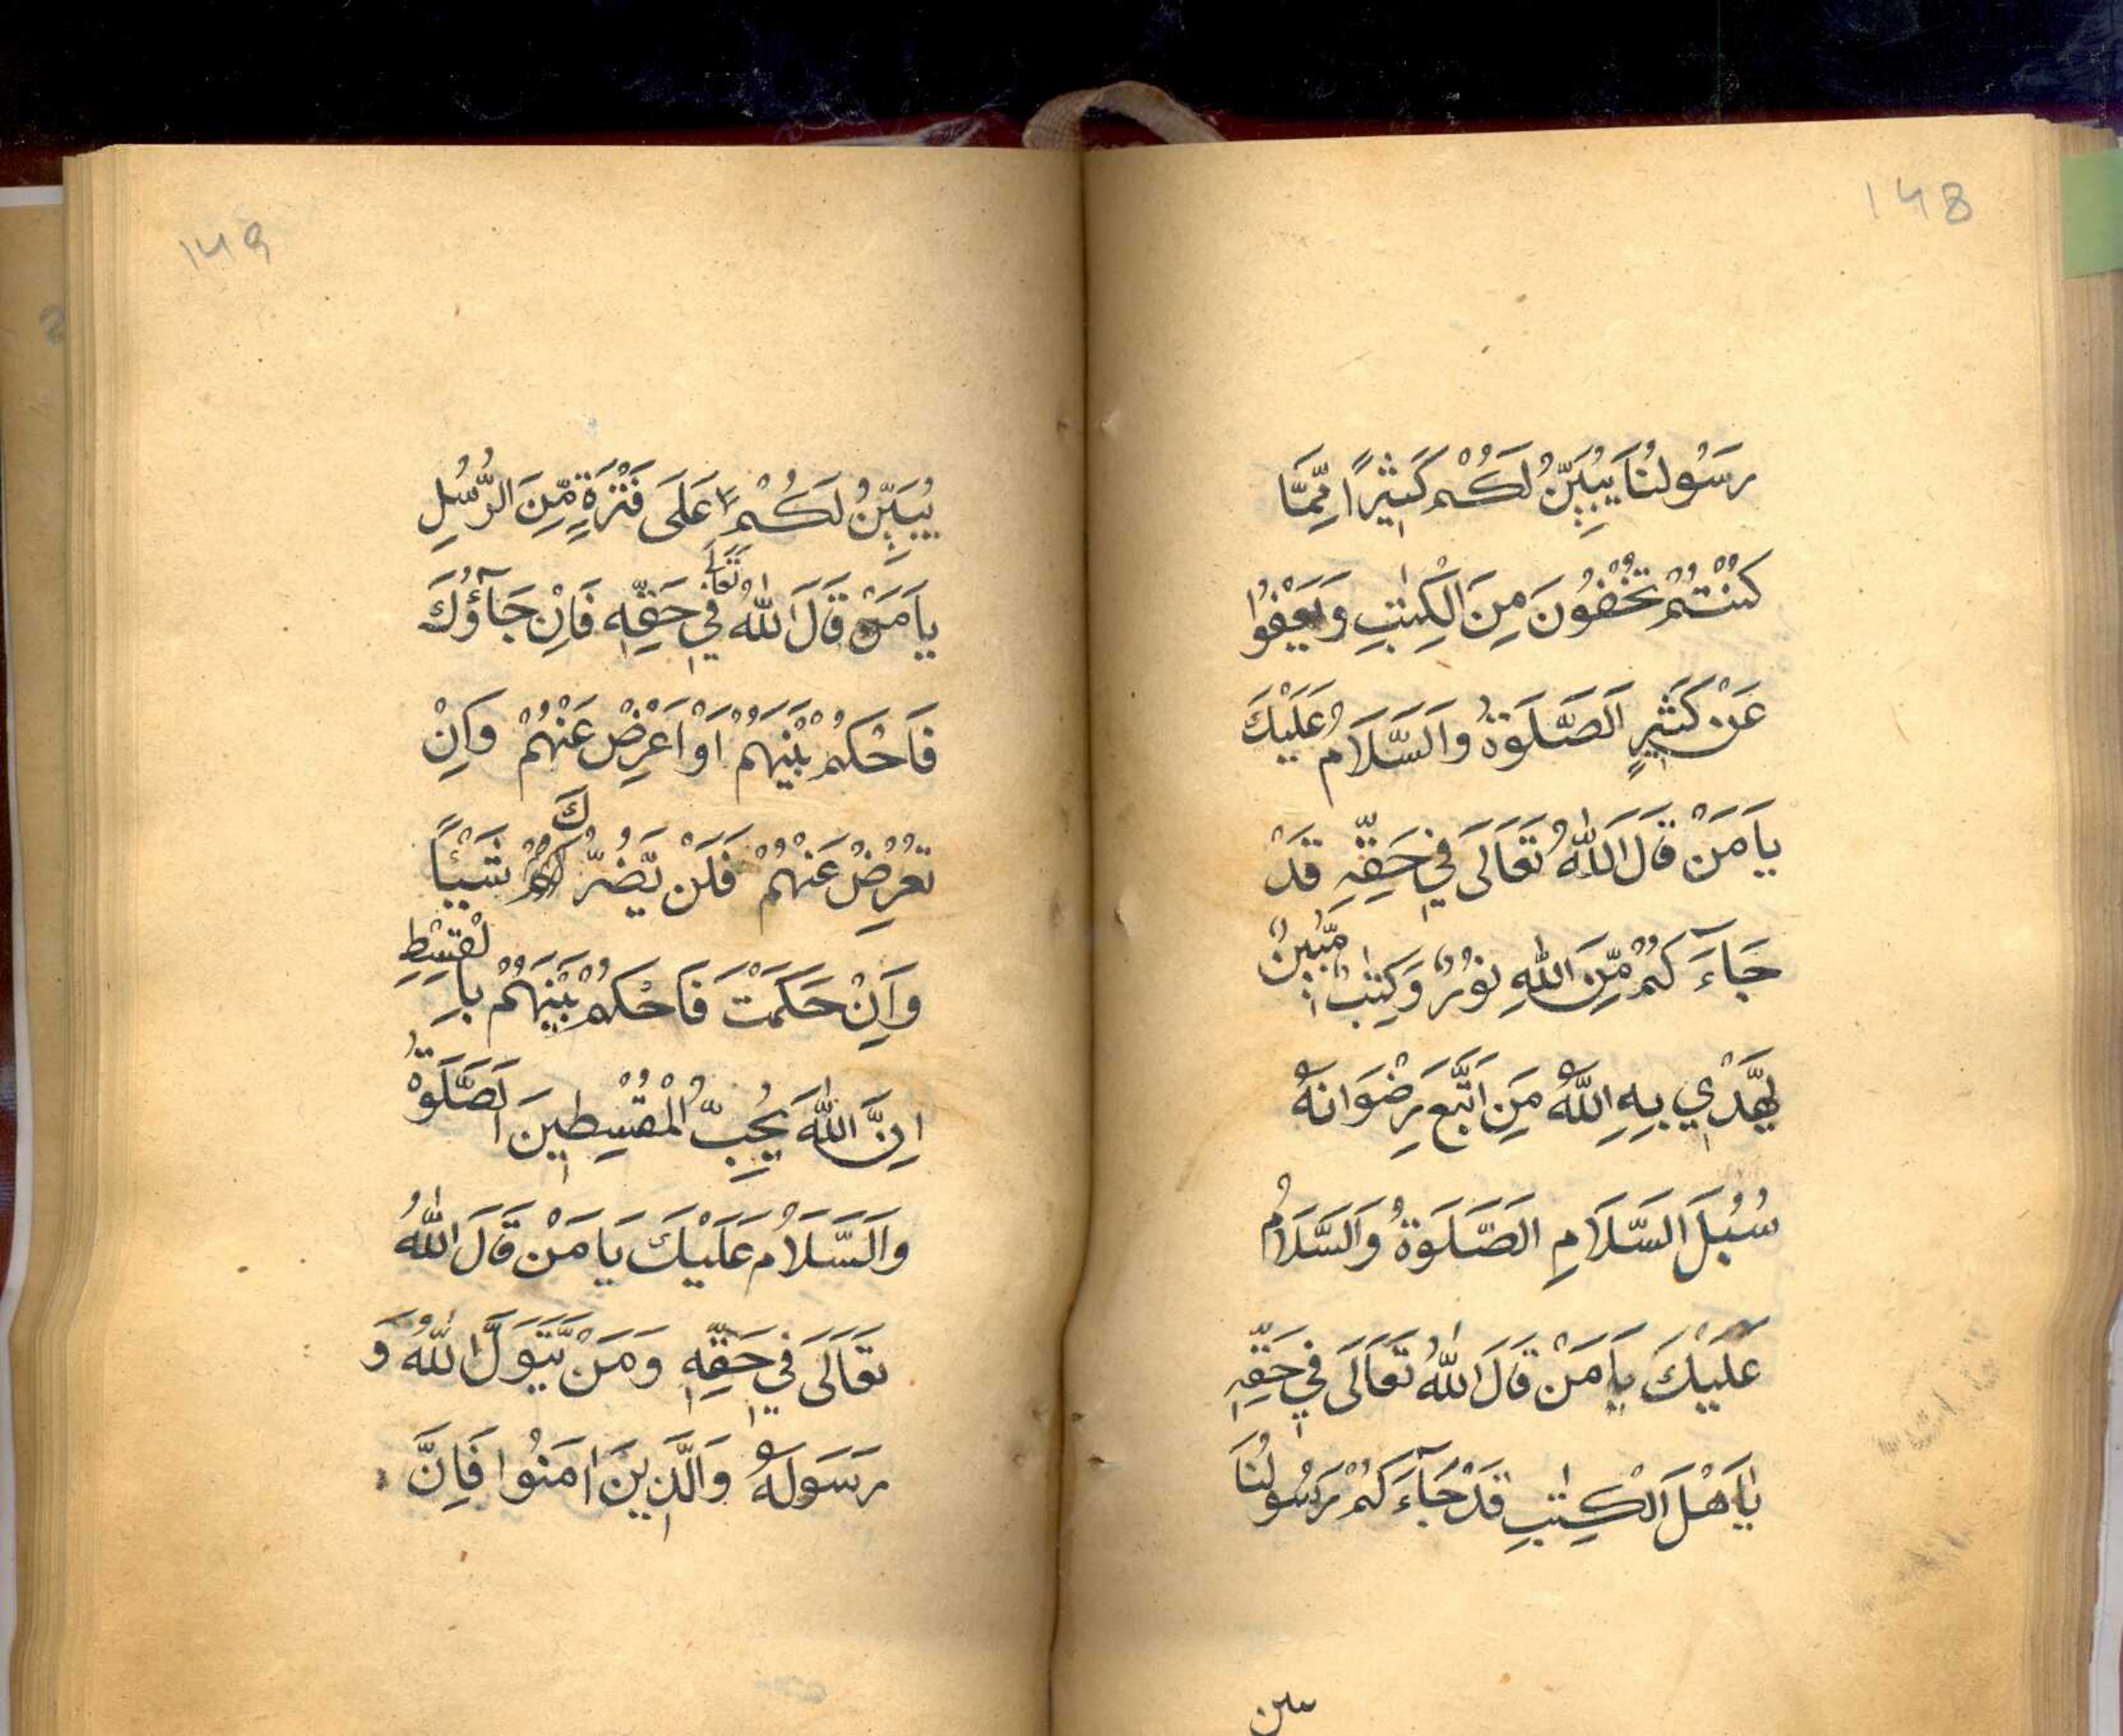 148
رَسُولُنَا يُبَيِّنُ لَكُمْ كَثِيْرًا مِّمَّا
كُنْتُمْ تُخْفُونَ مِنَ الْكِتٰبِ وَيَعْفُوْا
عَنْ كَثِيْرٍ اَلصَّلَوةُ وَالسَّلَامُ عَلَيْكَ
يَا مَنْ قَالَ اللّٰهُ تَعَالَى فِي حَقِّهِ قَدْ
جَآءَكُمْ مِّنَ اللّٰهِ نُوْرٌ وَكِتٰبٌ مُّبِيْنٌ
يَّهْدِي بِهِ اللّٰهُ مَنِ اتَّبَعَ رِضْوَانَهُ
سُبُلَ السَّلَامِ الصَّلَوةُ وَالسَّلَامُ
عَلَيْكَ يَا مَنْ قَالَ اللّٰهُ تَعَالَى فِي حَقِّهِ
يٰاَهْلَ الْكِتٰبِ قَدْ جَآءَكُمْ رَسُولُنَا
149
يُبَيِّنُ لَكُمْ عَلَى فَتْرَةٍ مِّنَ الرُّسُلِ
يَا مَنْ قَالَ اللّٰهُ تَعَالَى فِي حَقِّهِ فَاِنْ جَآؤُكَ
فَاحْكُمْ بَيْنَهُمْ اَوْ اَعْرِضْ عَنْهُمْ وَاِنْ
تُعْرِضْ عَنْهُمْ فَلَنْ يَّضُرُّوكَ شَيْئًا
وَاِنْ حَكَمْتَ فَاحْكُمْ بَيْنَهُمْ بِالْقِسْطِ
اِنَّ اللّٰهَ يُحِبُّ الْمُقْسِطِيْنَ اَلصَّلَوةُ
وَالسَّلَامُ عَلَيْكَ يَا مَنْ قَالَ اللّٰهُ
تَعَالَى فِي حَقِّهِ وَمَنْ يَّتَوَلَّ اللّٰهَ وَ
رَسُولَهُ وَالَّذِيْنَ اٰمَنُوا فَاِنَّ